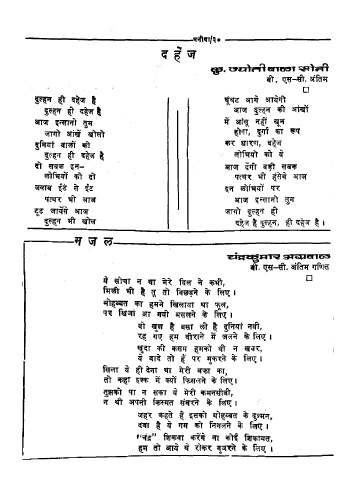 मनीषा/२०
दहेज
कु. ज्योतीबाला सोनी
बी. एस-सी. अंतिम
दुल्हन ही दहेज है
दुल्हन ही दहेज है
आज इन्सानो तुम
जागो आंखें खोलो
दुनियां वालों की
दुल्हन ही दहेज है
दो सबक इन-
लोभियों को दो
जवाब ईंट से ईंट
पत्थर भी आज
टूट जायेंसे आज
दुल्हन भी खोल
घूंघट आगे आयेगी
आज दुल्हन की आंखों
में आंसू नहीं खून
होगा, दुर्गा का रूप
कर धारण, दहेज
लोभियों को ये
आज देंगी बड़ी सबक
पत्थर भी हंसेगे आज
इन लोभियों पर
आज इन्सानो तुम
जागो दुल्हन ही
दहेज है दुल्हन, ही दहेज है ।
गजल
चंद्रकुमार अग्रवाल
बी. एस-सी. अंतिम गणित
ये सोचा न था मेरे दिल ने कभी,
मिली थी है तू तो बिछड़ने के लिए ।
मोहब्बत का हमने खिलाया था फूल,
पर खिजा आ गयी मसलने के लिए ।
वो खुश है बसा ली है दुनियां नयी,
रह गए हम वीराने में जलने के लिए ।
खुदा की कसम हमको थी न खबर,
ये वादे तो हैं पर मुकरने के लिए ।
सिला ये ही देना था मेरी वफा का,
तो कहा इश्क में क्यों फिसलने के लिए ।
तुझको पा न सका ये मेरी कमनसीबी,
न थी अपनी किस्मत संवरने के लिए ।
जहर कहते हैं इसको मोहब्बत के दुश्मन,
दवा है ये गम को निगलने के लिए ।
"चंद्र" शिकवा करेंगे ना कोई शिकायत,
हम तो आये थे रोकर गुजरने के लिए ।